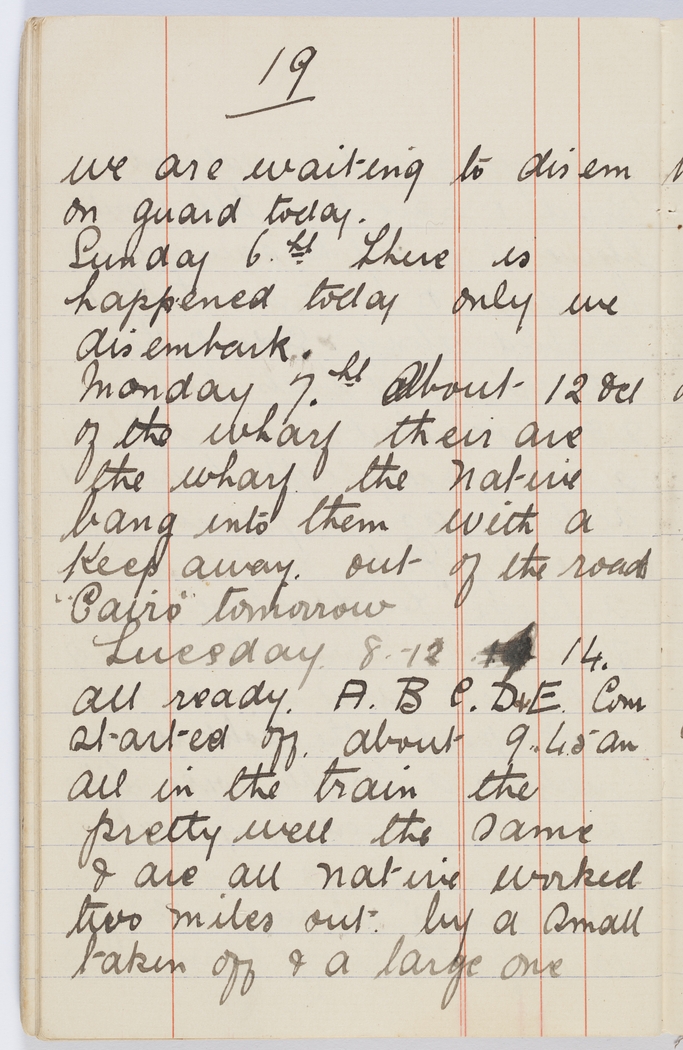 19
we are waiting to disem
on guard today.
Sunday 6.th there is
happened today only we
disembark.
Monday 7.th About 12 ocl
of the wharf their are
the wharf the native
bang into them with a
keep away. out of the road
"Cairo" tomorrow
Tuesday 8-12 14.
all ready. A. B C. D & E. Com
started off. about 9.45 am
all in the train the
pretty well the same
& are all native worked
two miles out. by a small
taken off & a large one